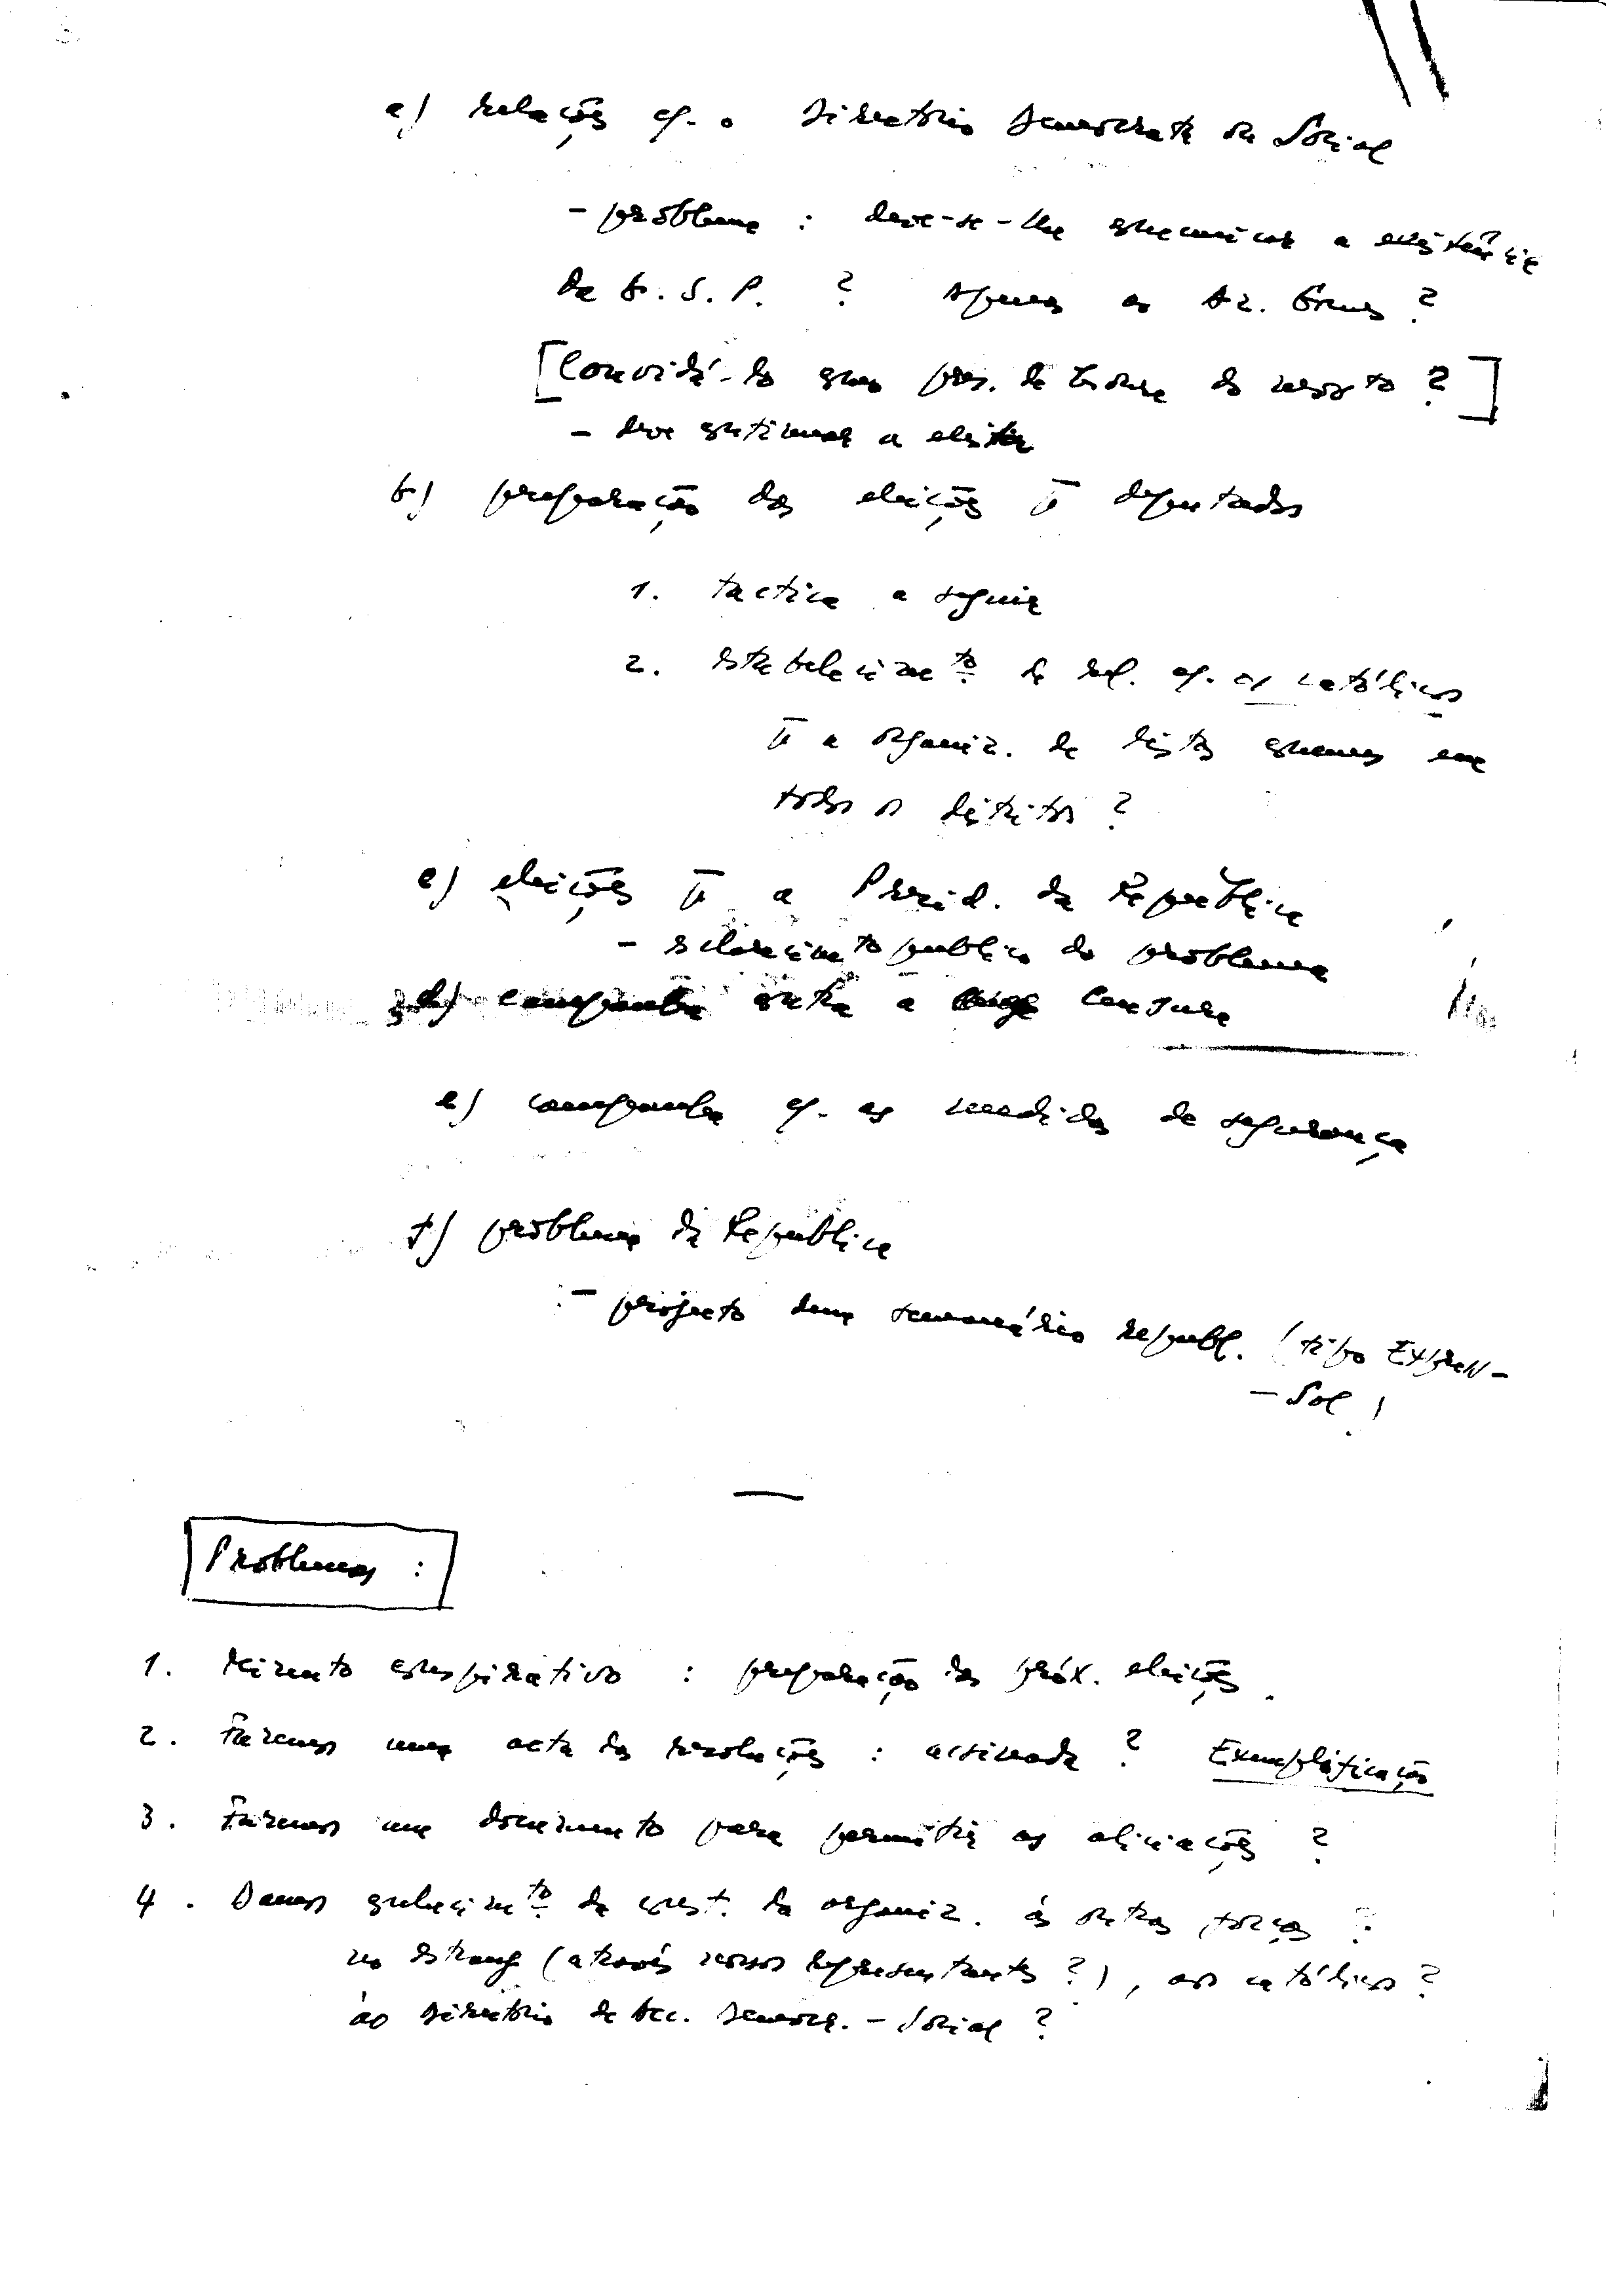 a) relações c/. o Directório Democrata ou Social
- problema : deve-se-lhe comunicar a existência
da A. S. P. ? Apenas ao Az. Gomes ?
[Convidá-lo como pres. de honra do nosso ?]
- deve continuar a existir
b) preparação das eleições p̄ deputados
1. tactica a seguir
2. estabelecimᵗᵒ de rel. c/. os católicos
p̄ a organiz. de listas comuns em
todos os distritos ?
c) eleições p̄ a Presid. da República
- esclarecimᵗᵒ publico do problema
d) campanha contra a Censura
e) campanha c/. as medidas de segurança
f) problema da Republica
- projecto dum semanário republ. (tipo Expres-
- Sol)
Problemas :
1. conspirativo : preparação das próx. eleições.
2. Faremos uma acta das resoluções : assinada ? Exemplificação
3. Faremos um documento para permitir as aliciações ?
4. Damos conhecimᵗᵒ da const. da organiz. ás outras forças ?
no estrang (através nossos representantes ?), aos católicos ?
ao Directório de Acc. Democr. - Social ?